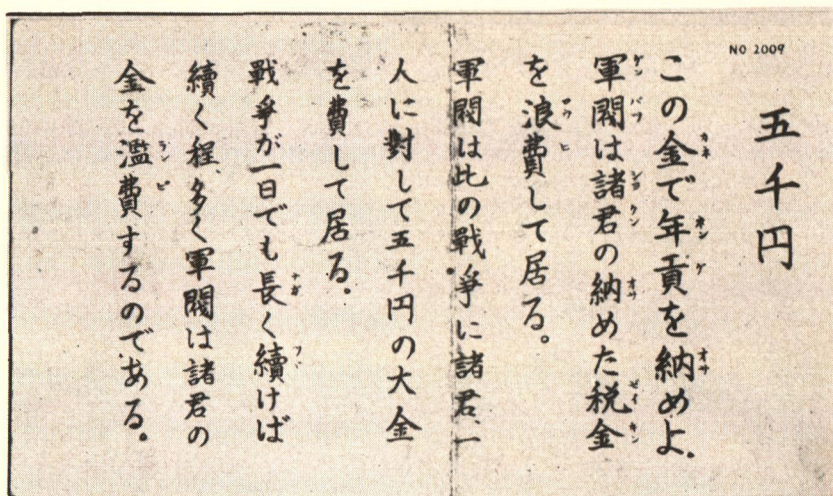 NO 2009
五千円
この金で年貢を納めよ.
軍閥は諸君の納めた税金
を浪費して居る。
軍閥は此の戰爭に諸君、一
人に對して五千円の大金
を費して居る.
戰爭が一日でも長く續けば
續く程、多く軍閥は諸君の
金を濫費するのである.